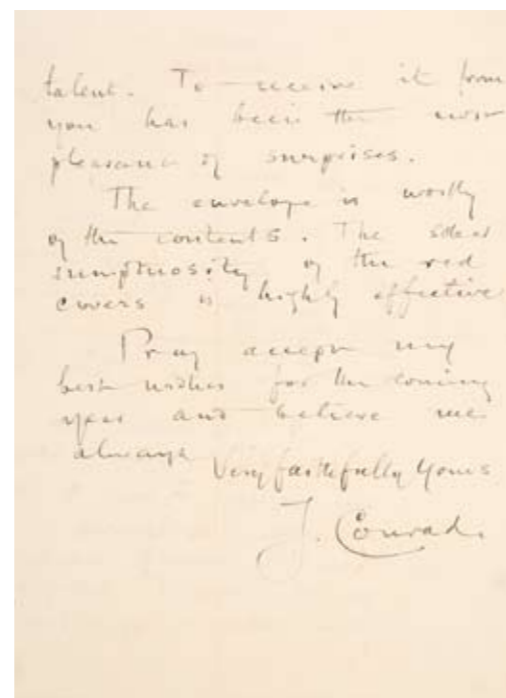 talent. To receive it from
you has been the most
pleasant of surprises.
The envelope is worthy
of the contents. The sober
sumptuosity of the red
covers is highly effective
Pray accept my
best wishes for the coming
year and believe me
always
Very faithfully Yours
J. Conrad.